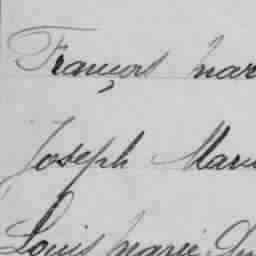 François mar
Joseph Marie
Louis marie